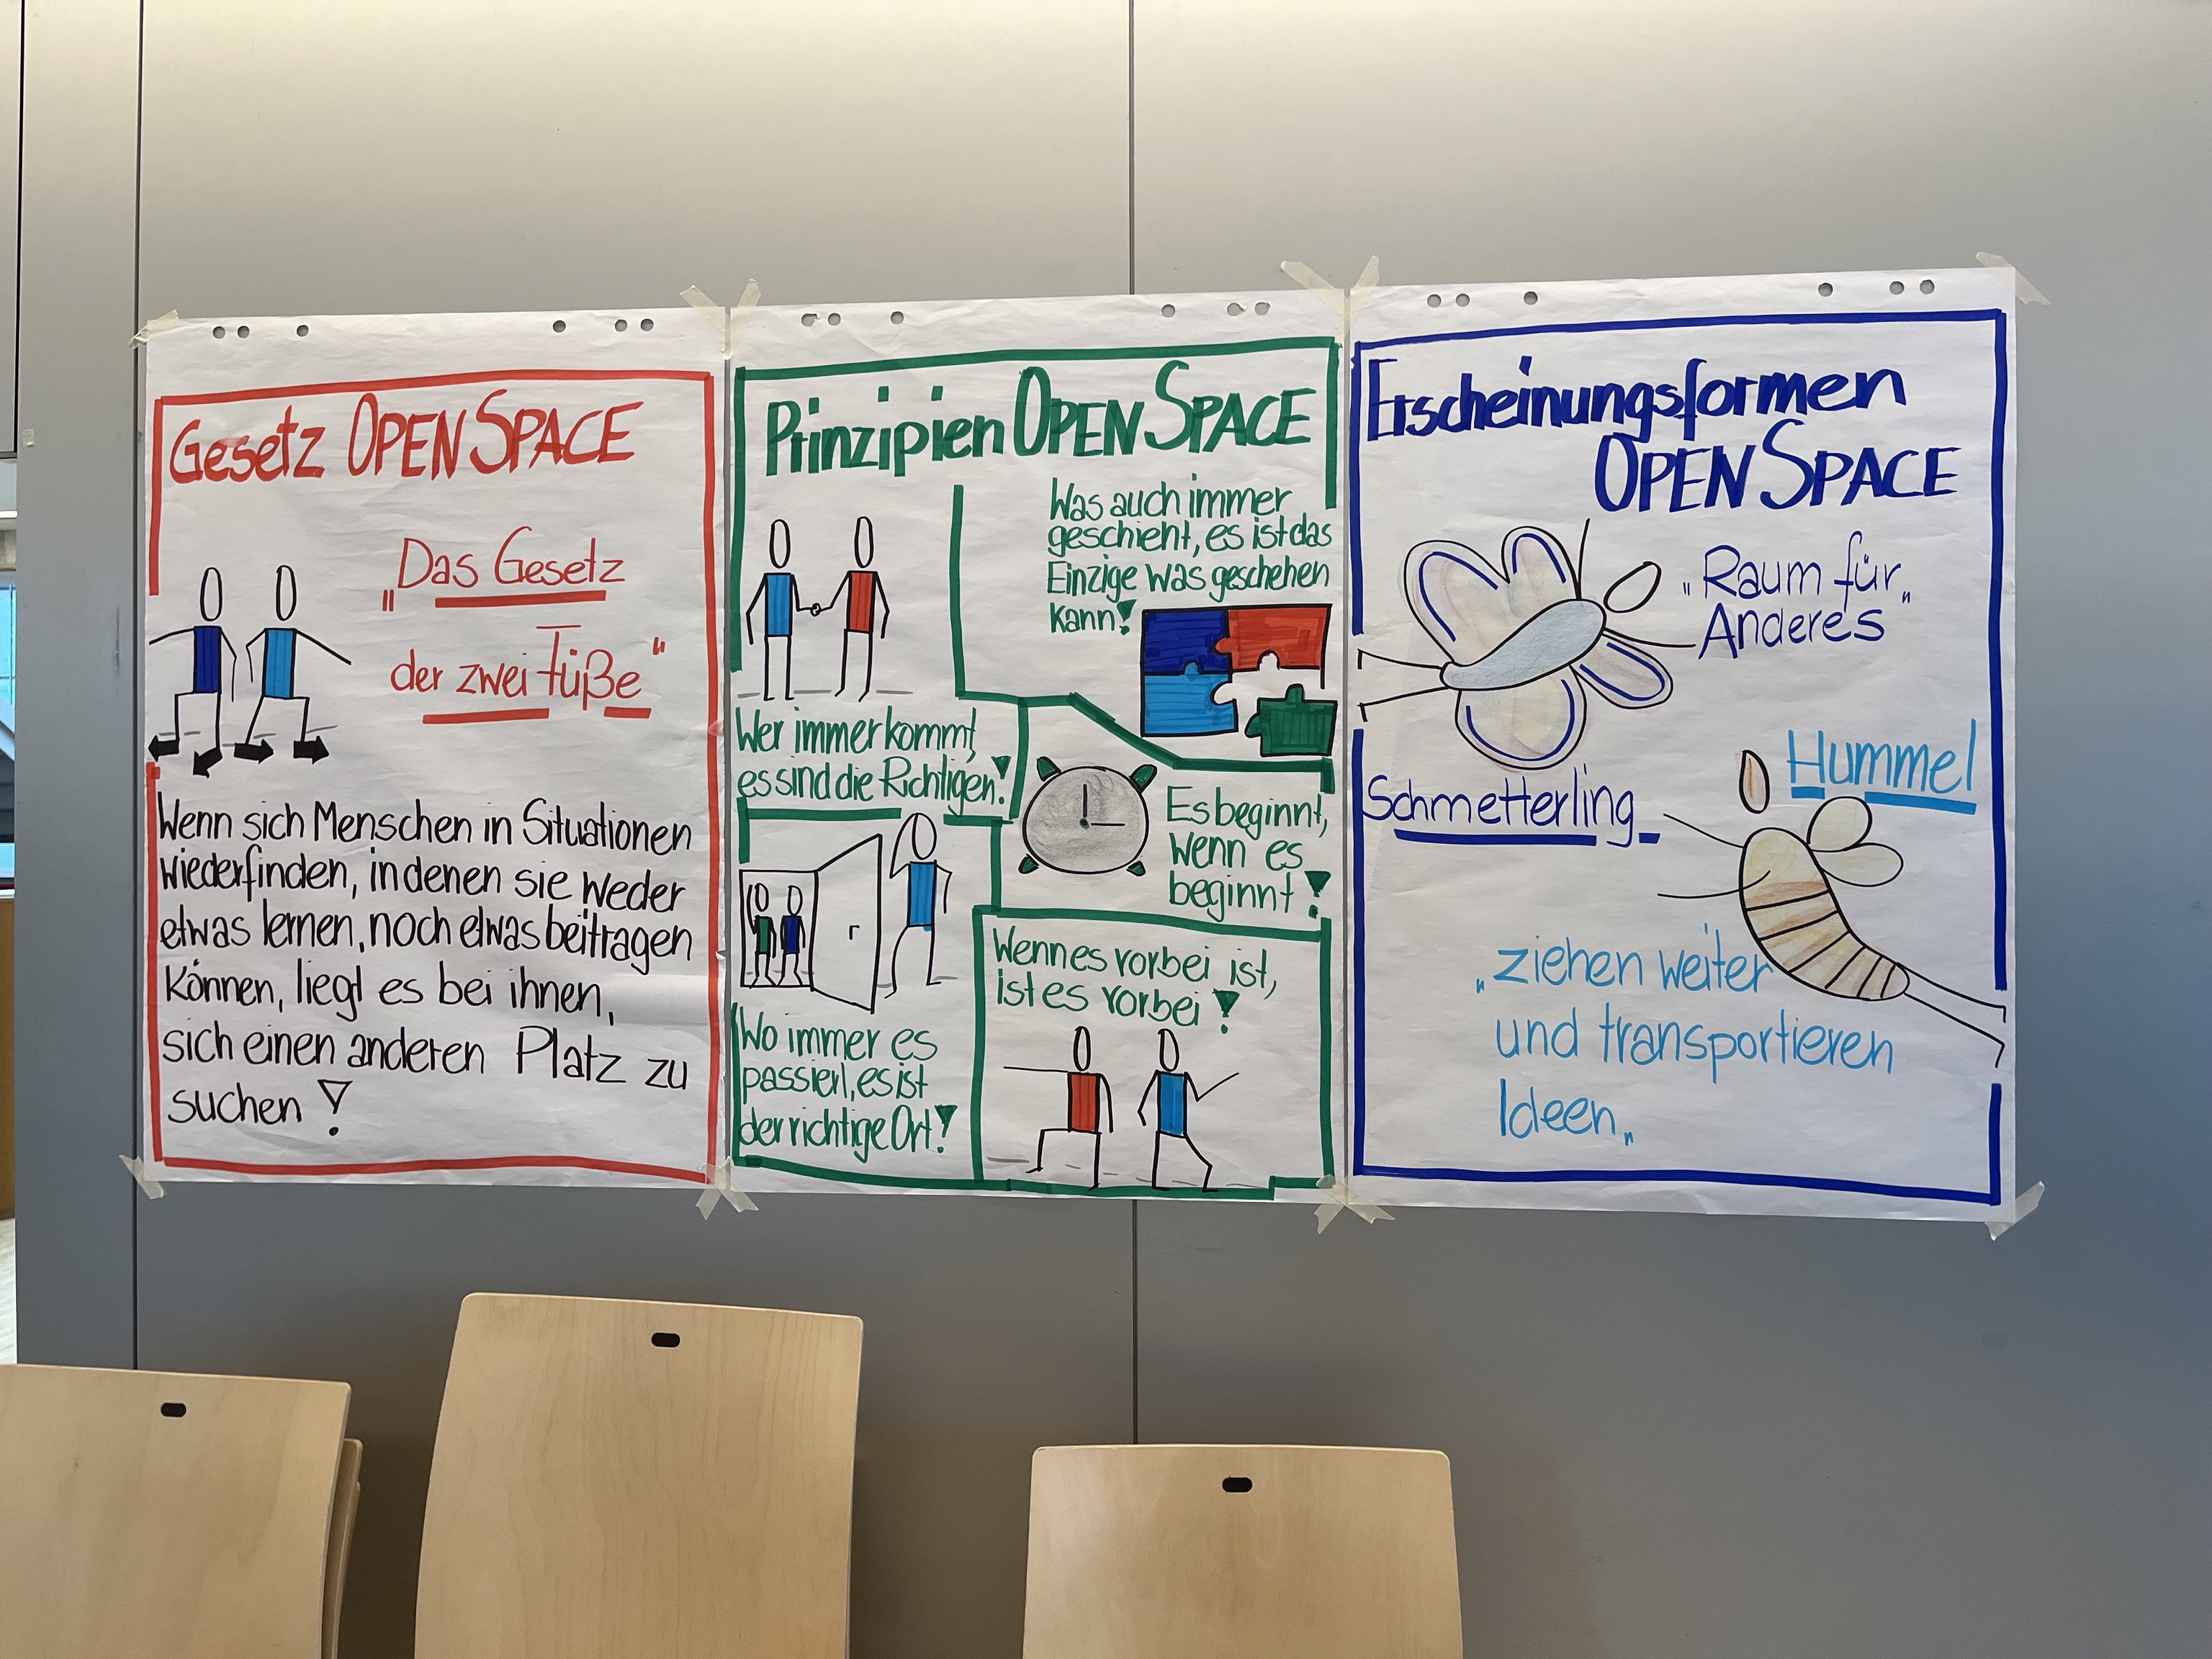 Gesetz OPEN SPACE
„Das Gesetz
der zwei Füße"
Wenn sich Menschen in Situationen
wiederfinden, in denen sie weder
etwas lernen, noch etwas beitragen
können, liegt es bei ihnen,
sich einen anderen Platz zu
suchen!
Prinzipien OPEN SPACE
Was auch immer
geschieht, es ist das
Einzige was geschehen
kann!
Wer immer kommt,
es sind die Richtigen!
Es beginnt,
wenn es
beginnt!
Wo immer es
passiert, es ist
der richtige Ort!
Wenn es vorbei ist,
ist es vorbei!
Erscheinungsformen
OPEN SPACE
„Raum für
Anderes"
Schmetterling
Hummel
„ziehen weiter
und transportieren
Ideen„